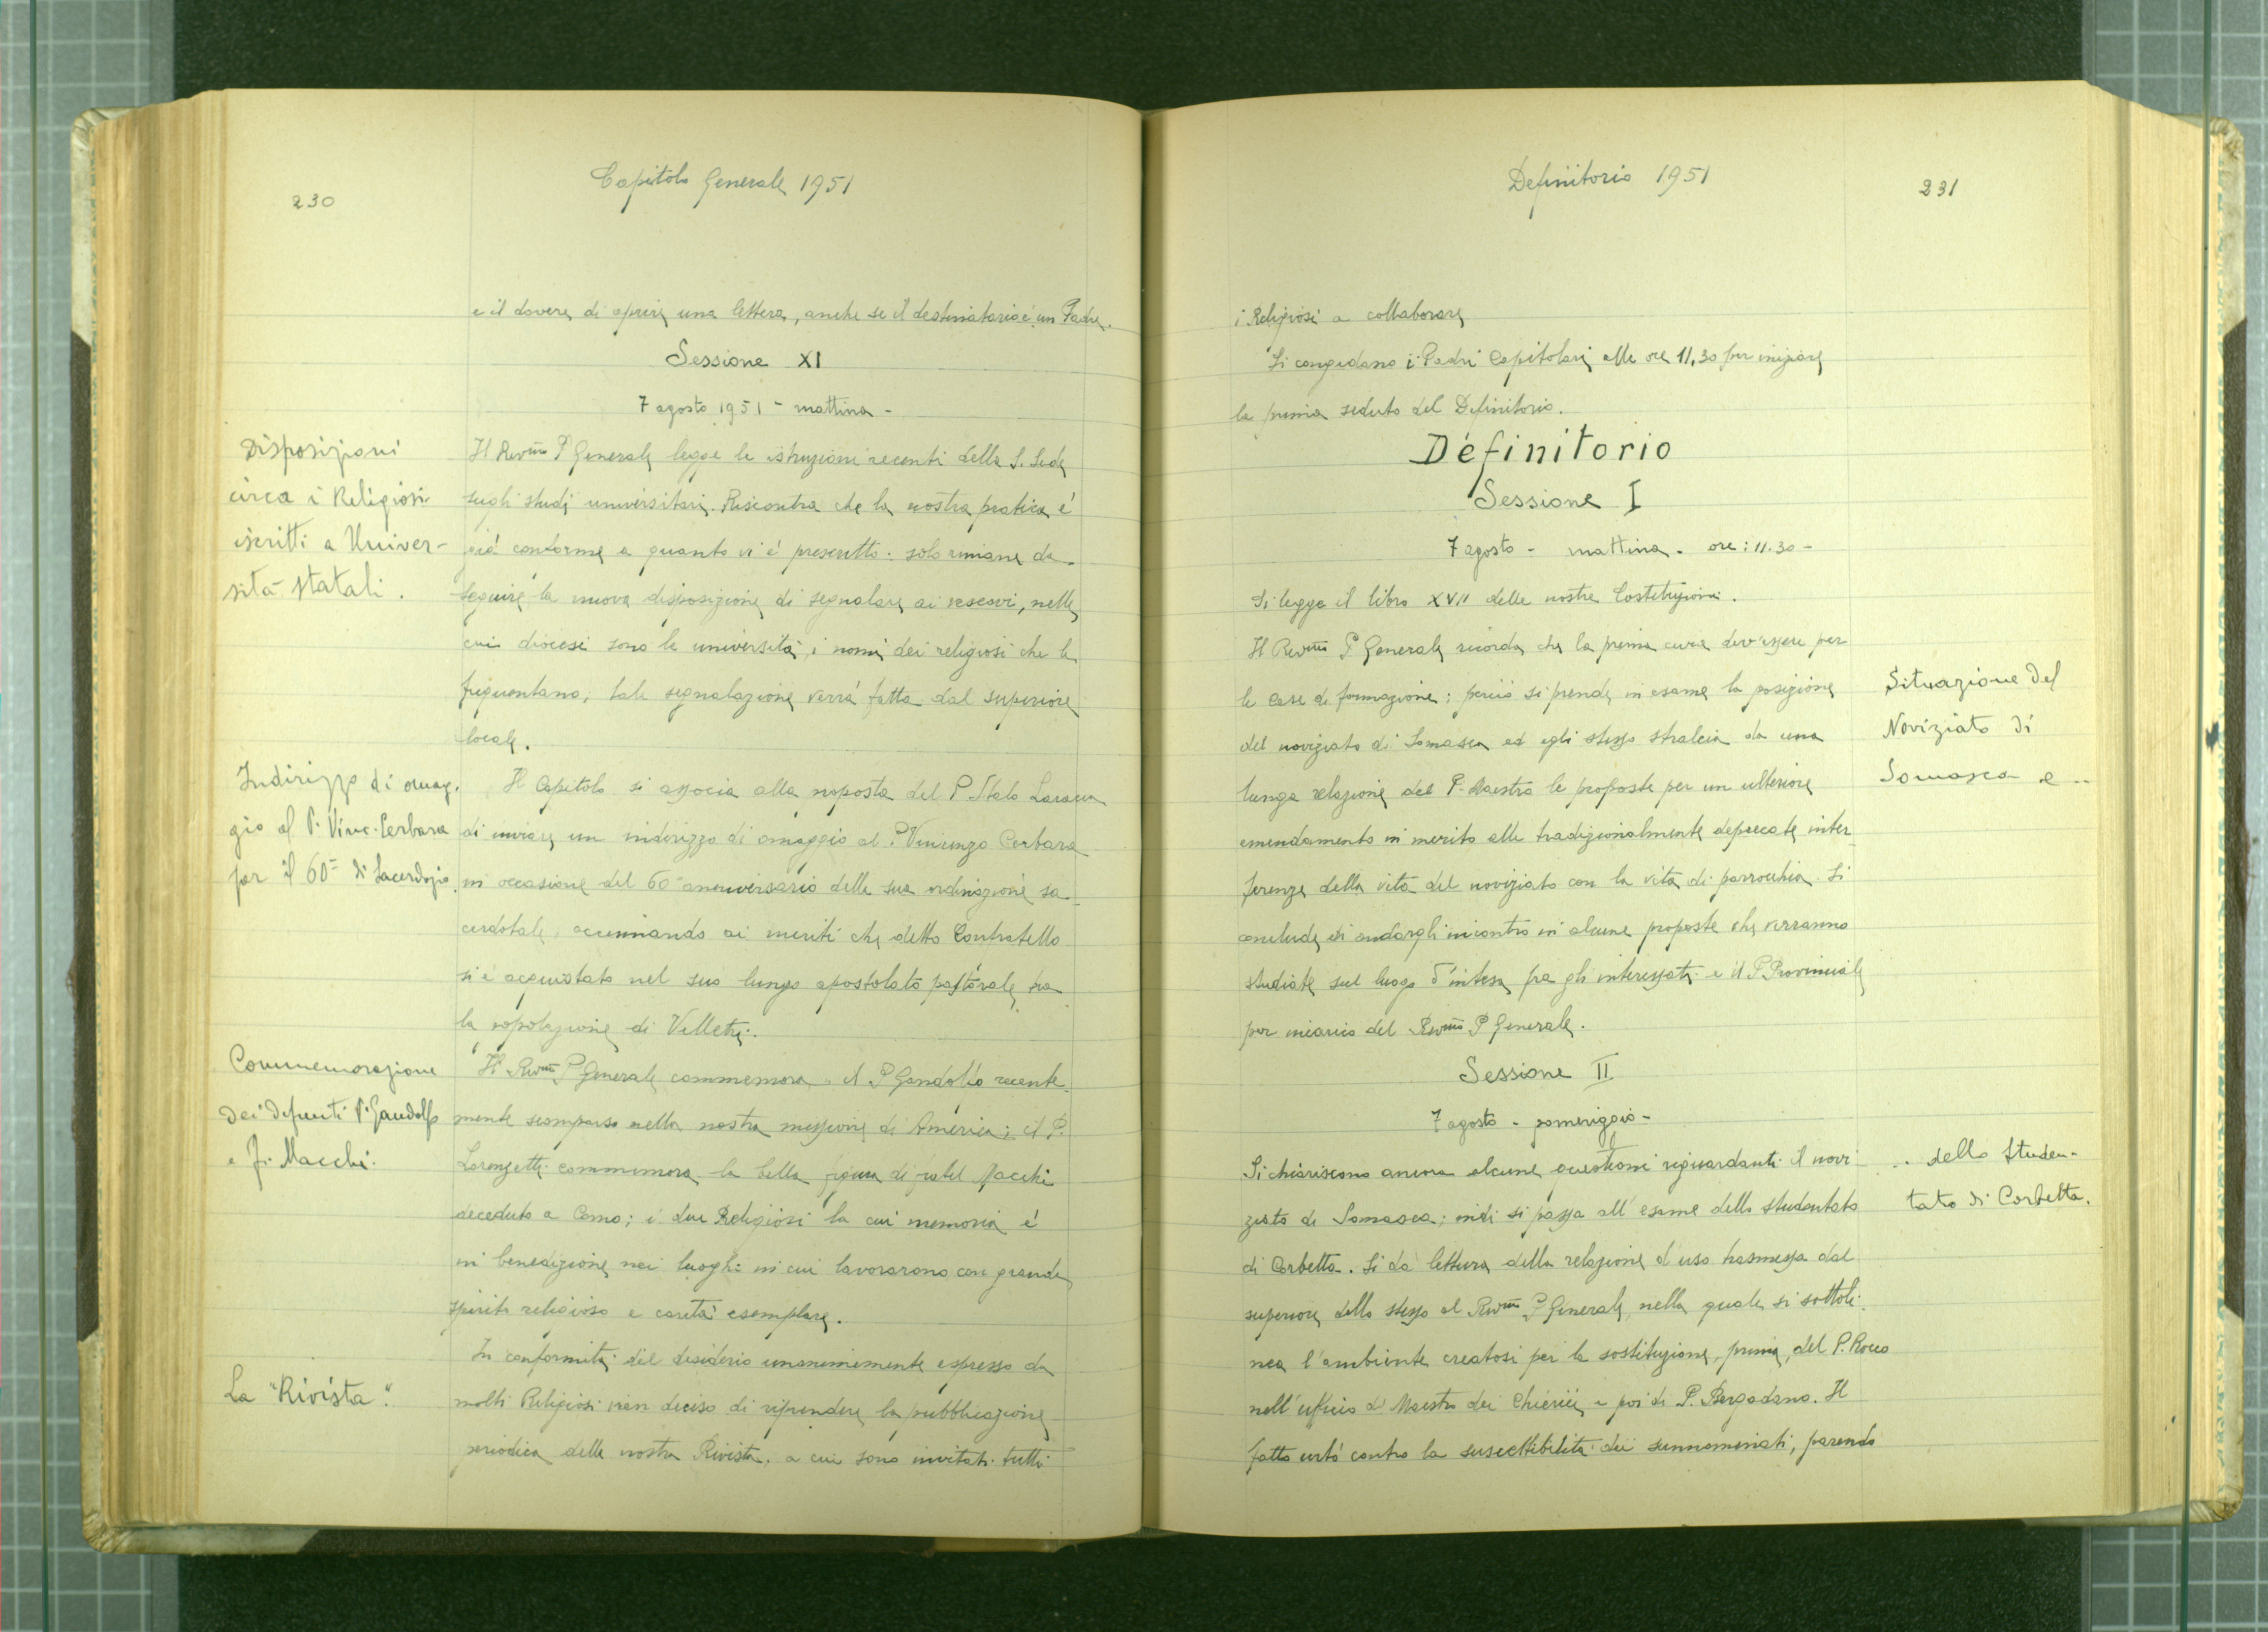 230
Capitolo Generale 1951
e il dovere di aprire una lettera, anche se il destinatario è un Padre.
Sessione XI
7 agosto 1951 - mattina -
Disposizioni
circa i Religiosi
iscritti a Univer-
sità statali.
Il Rev.mo P. Generale legge le istruzioni recenti della S. Sede
sugli studi universitari. Riscontra che la nostra pratica è
già conforme a quanto vi è prescritto: solo rimane da
seguire la nuova disposizione di segnalare ai vescovi, nelle
cui diocesi sono le università, i nomi dei religiosi che le
frequentano; tale segnalazione verrà fatta dal superiore
locale.
Indirizzo di omag-
gio al P. Vinc. Cerbara
per il 60° di Sacerdozio.
Il Capitolo si associa alla proposta del P. Italo Laracca
di inviare un indirizzo di omaggio al P. Vincenzo Cerbara
in occasione del 60° anniversario della sua ordinazione sa-
cerdotale, accennando ai meriti che detto Confratello
si è acquistato nel suo lungo apostolato pastorale tra
la popolazione di Velletri.
Commemorazione
dei defunti P. Gandolfo
e Fr. Macchi.
Il Rev.mo P. Generale commemora il P. Gandolfo recente-
mente scomparso nella nostra missione di America; il P.
Lorenzetti commemora la bella figura di fratel Macchi
deceduto a Como; i due Religiosi la cui memoria è
in benedizione nei luoghi in cui lavorarono con grande
spirito religioso e carità esemplare.
La "Rivista".
In conformità del desiderio unanimemente espresso da
molti Religiosi vien deciso di riprendere la pubblicazione
periodica della nostra Rivista, a cui sono invitati tutti
Definitorio 1951
231
i Religiosi a collaborare
Si congedano i Padri Capitolari alle ore 11,30 per iniziare
la prima seduta del Definitorio.
Definitorio
Sessione I
7 agosto - mattina - ore: 11.30 -
Si legge il libro XVII delle nostre Costituzioni.
Il Rev.mo P. Generale ricorda che la prima cura dev'essere per
le case di formazione; perciò si prende in esame la posizione
del noviziato di Somasca ed egli stesso stralcia da una
lunga relazione del P. Maestro le proposte per un ulteriore
emendamento in merito alle tradizionalmente deprecate inter-
ferenze della vita del noviziato con la vita di parrocchia. Si
conclude di andargli incontro in alcune proposte che verranno
studiate sul luogo d'intesa fra gli interessati e il P. Provinciale
per incarico del Rev.mo P. Generale.
Situazione del
Noviziato di
Somasca e ...
Sessione II
7 agosto - pomeriggio -
Si chiariscono ancora alcune questioni riguardanti il novi-
ziato di Somasca; indi si passa all'esame dello studentato
di Corbetta. Si dà lettura della relazione d'uso trasmessa dal
superiore dello stesso al Rev.mo P. Generale, nella quale si sottoli-
nea l'ambiente creatosi per la sostituzione, prima, del P. Rocco
nell'ufficio di Maestro dei Chierici e poi di P. Bergadano. Il
fatto urtò contro la suscettibilità dei sunnominati, parendo
... dello studen-
tato di Corbetta.